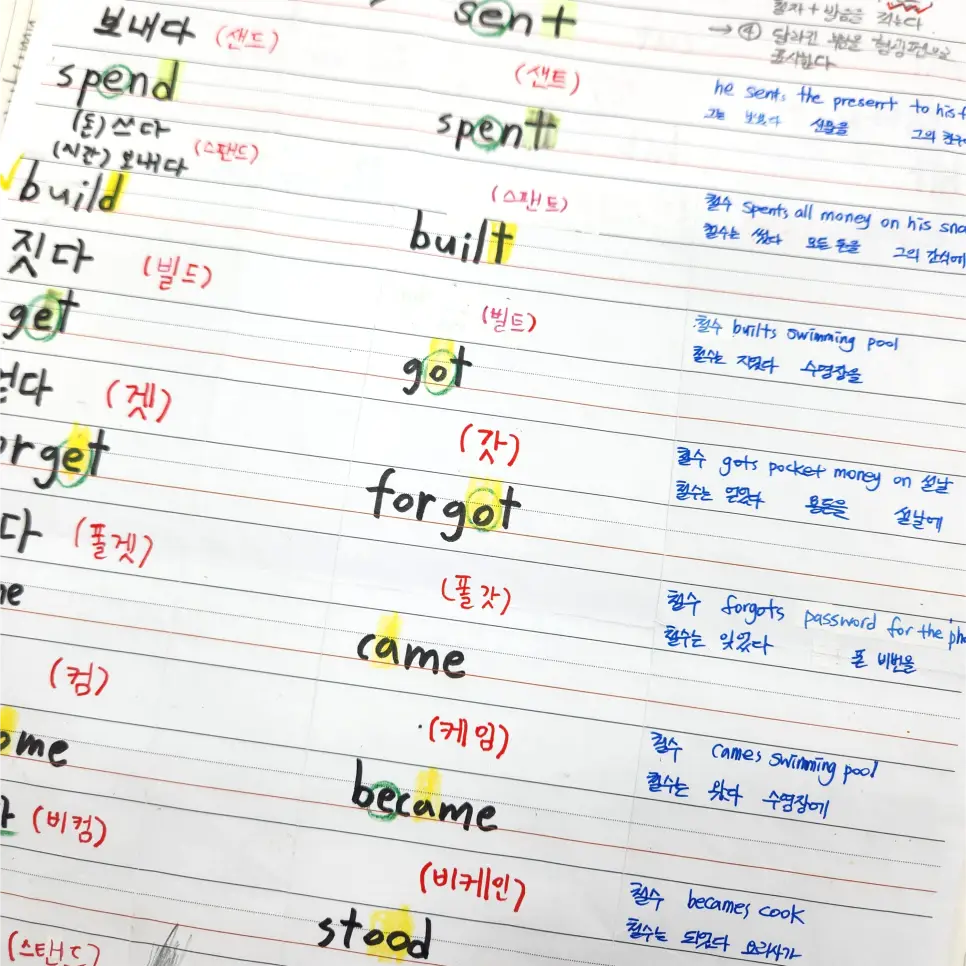 sent
철자 + 발음을 적는다
→ ④ 달라진 부분을 형광펜으로
표시한다
보내다 (샌드)
(샌트)
he sents the present to his f
그는 보냈다 선물을 그의 친구
spend
spent
(돈) 쓰다
(시간) 보내다 (스팬드)
(스팬트)
철수 spents all money on his sna
철수는 썼다 모든 돈을 그의 간식에
build
built
짓다 (빌드)
(빌트)
철수 builts swimming pool
철수는 지었다 수영장을
get
got
얻다 (겟)
(갓)
철수 gots pocket money on 설날
철수는 얻었다 용돈을 설날에
orget
forgot
다 (폴겟)
(폴갓)
철수 forgots password for the pho
철수는 잊었다 폰 비번을
me
came
(컴)
(케임)
철수 cames swimming pool
철수는 왔다 수영장에
ome
became
(비컴)
(비케인)
철수 becames cook
철수는 되었다 요리사가
stood
(스탠드)